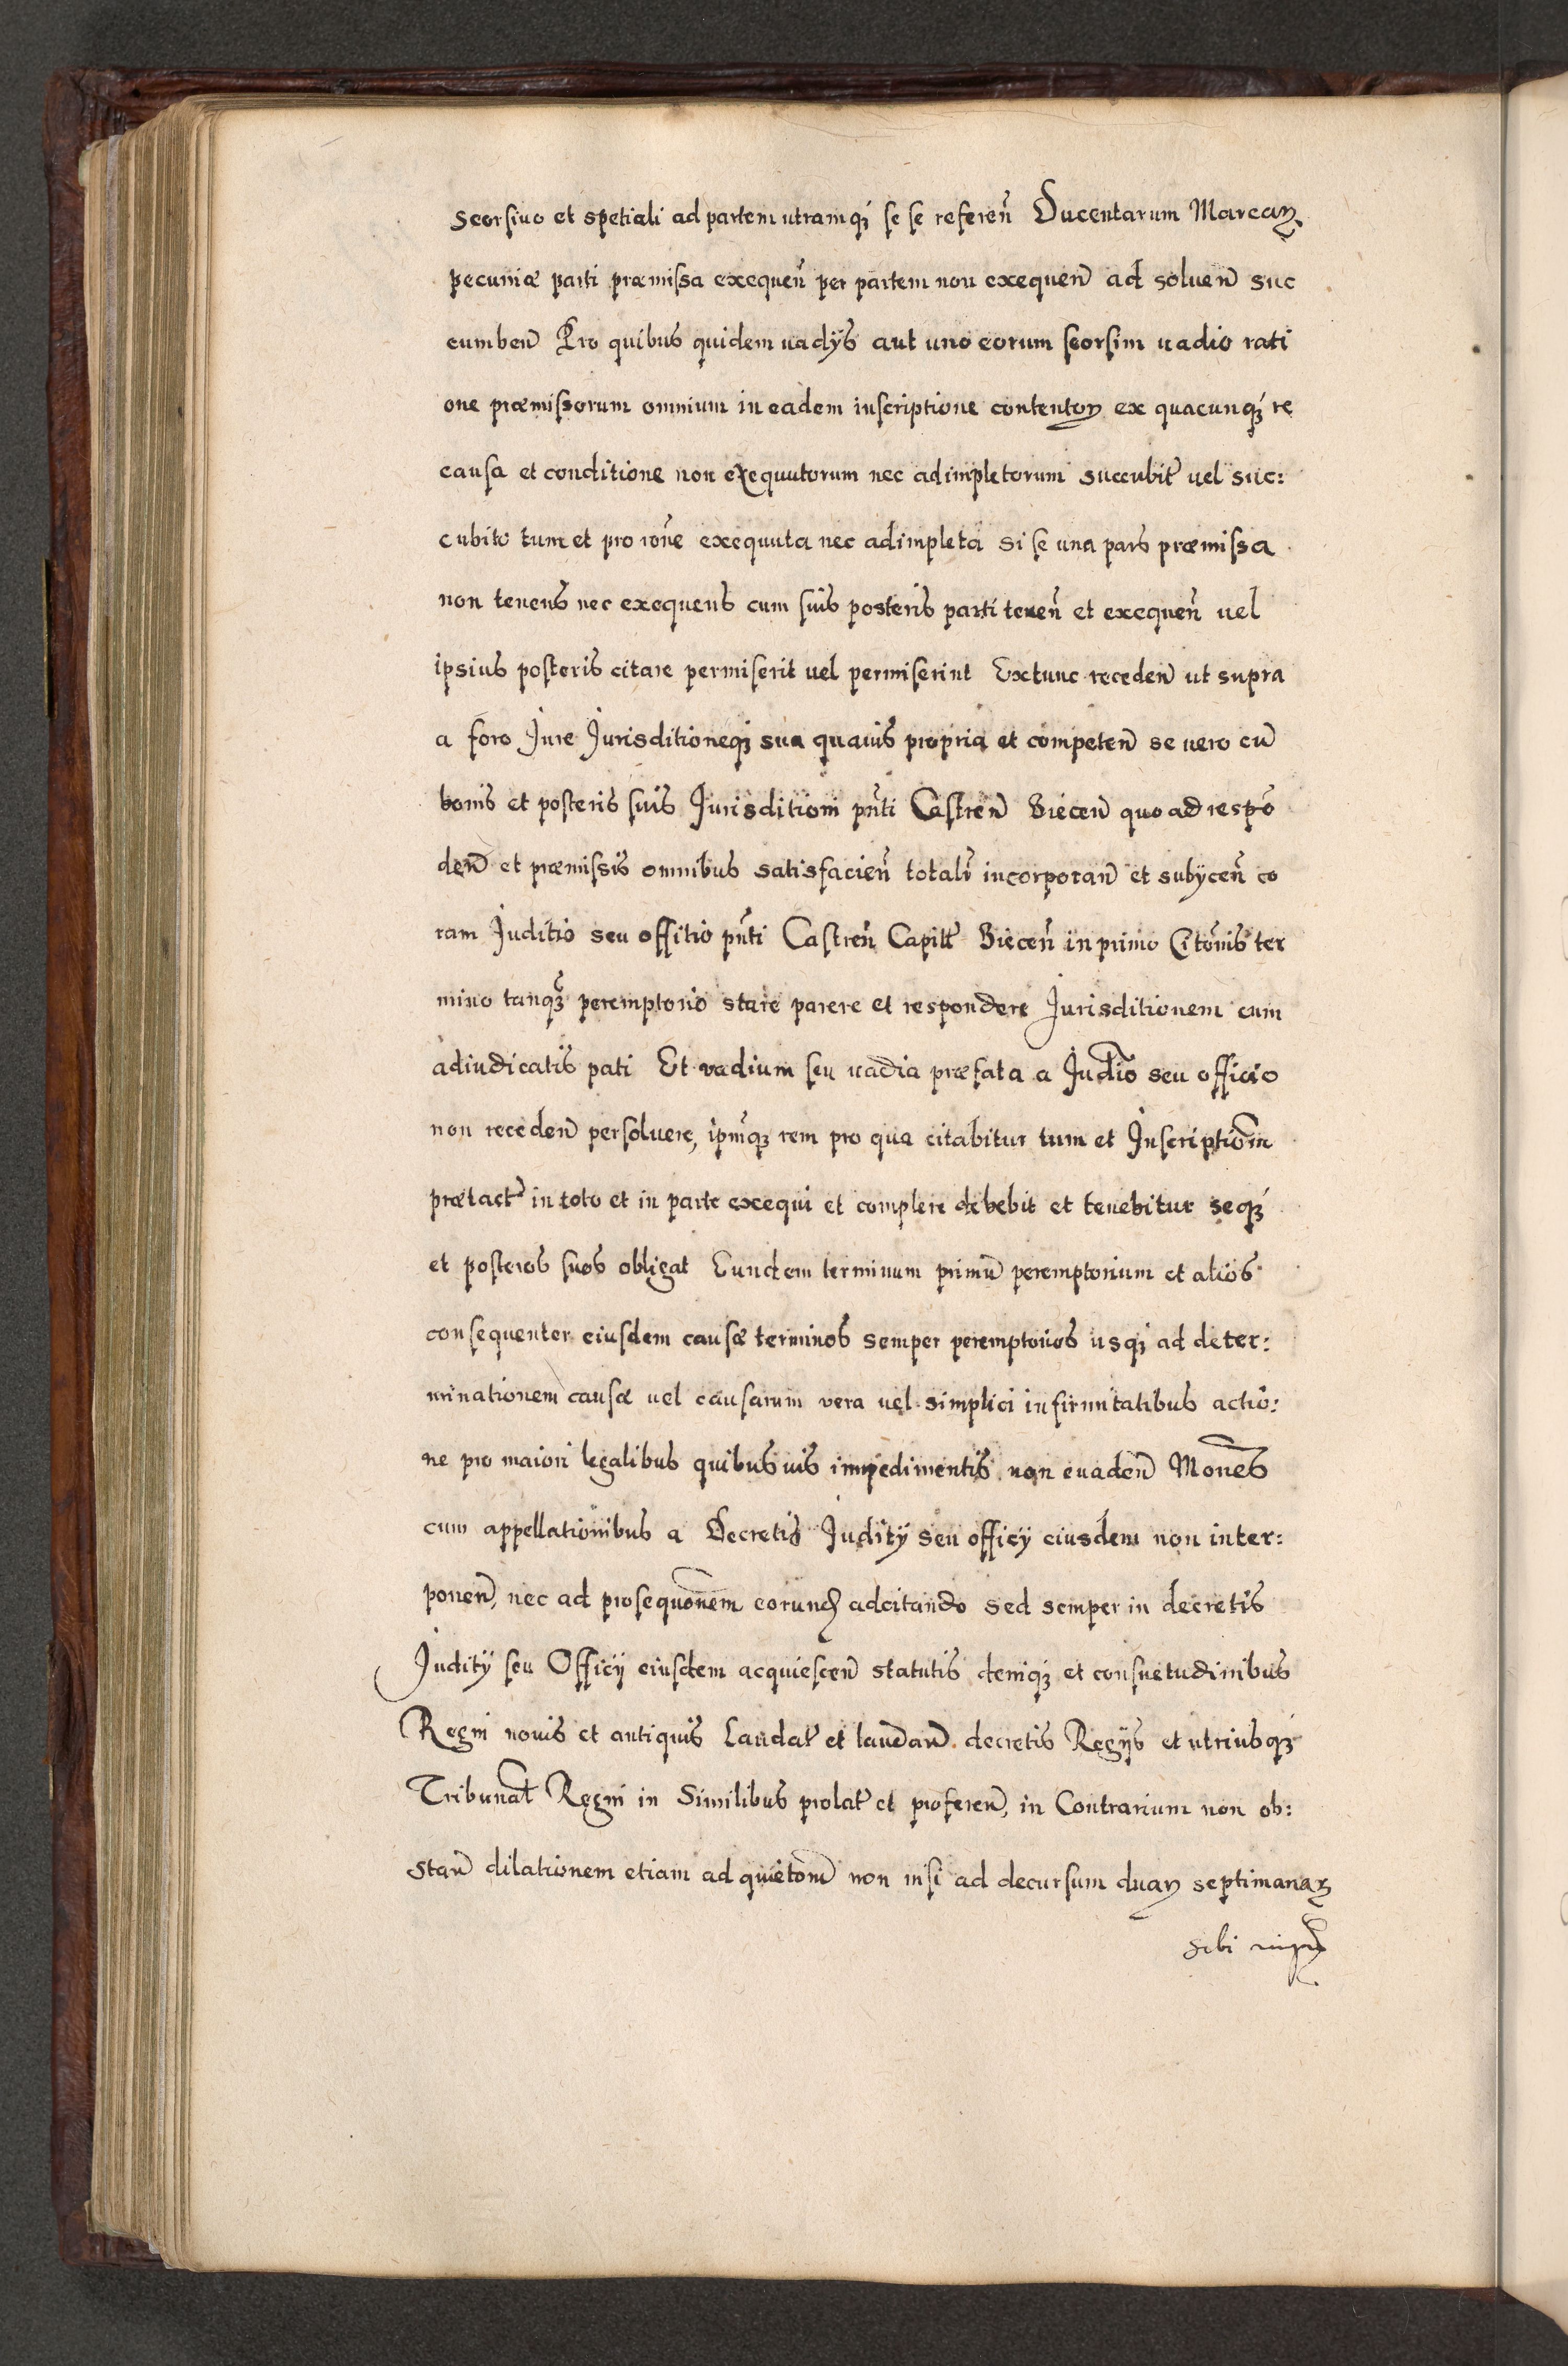 seorsiuo et spetiali ad partem utramq́ȝ se se referen̄ Ducentarum Marcaꝝ
pecuniæ parti præmissa exequen̄ per partem non exequen̄ ad soluen̄ suc
cumben̄ Pro quibus quidem uadÿs aut uno eorum seorsim uadio rati
one præmissorum omnium in eadem inscriptione contentoꝝ ex quacunq́ȝ re
causa et conditione non exequutorum nec adimpletorum succubit̄ uel suc:
cubito tum et pro exequuta nec adimpleta si se una pars præmissa
non tenens nec exequens cum suis posteris parti tenen̄ et exequen̄ uel
ipsius posteris citare permiserit uel permiserint Extunc receden̄ ut supra
a foro Jure Jurisditioneqȝ sua quauis propria et competen̄ se uero cū
bonis et posteris suis Jurisditioni pn̄ti Castren̄ Biecen̄ quo ad respō
den̄ et præmissis omnibus satisfacien̄ totalr̄ incorporan̄ et subÿcen̄ co
ram Juditio seu offitio pn̄ti Castren̄ Capitt̄ Biecen̄ in primo Citōnis ter
mino tanqȝ̄ peremptorio stare parere et respondere Jurisditionem cum
adiudicatis pati Et vadium seu uadia præfata a Judīo seu officio
non receden̄ persoluere, ipm̄qȝ rem pro qua citabitur tum et Inscriptiōm
prætact̄ in toto et in parte exequi et complere debebit et tenebitur seq́ȝ
et posteros suos obligat Eundem terminum primū peremptorium et alios
consequenter eiusdem causæ terminos semper peremptorios usqȝ ad deter:
minationem causæ uel causarum vera uel simplici infirmitatibus actio:
ne pro maiori legalibus quibusuis impedimentis non euaden̄ Monēs
cum appellationibus a Decretis Juditÿ seu officÿ eiusdem non inter:
ponen̄, nec ad prosequōnem eorund̄ adcitando sed semper in decretis
Juditÿ seu Officÿ eiusdem acquiescen̄ statutis deniqȝ et consuetudinibus
Regni nouis et antiquis Laudat̄ et laudan̄. decretis Regÿs et utriusq́ȝ
Tribunal̄ Regni in Similibus prolat̄ et proferen̄, in Contrarium non ob:
stan̄ dilationem etiam ad quietōm̄ non nisi ad decursum duaꝝ septimanaꝝ
sibi